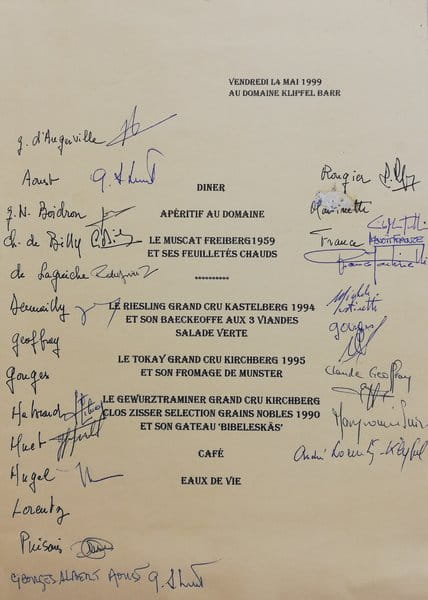 VENDREDI L4 MAI 1999
AU DOMAINE KLIPFEL BARR
g. d'Angerville
Aoust
DINER
Rougier
g. N. Boidron
APÉRITIF AU DOMAINE
Martinette
Ch. de Billy
LE MUSCAT FREIBERG 1959
France
ET SES FEUILLETÉS CHAUDS
de Laguiche
**********
LE RIESLING GRAND CRU KASTELBERG 1994
ET SON BAECKEOFFE AUX 3 VIANDES
gouges
SALADE VERTE
Geoffray
LE TOKAY GRAND CRU KIRCHBERG 1995
Gouges
ET SON FROMAGE DE MUNSTER
Claude Geoffray
LE GEWURZTRAMINER GRAND CRU KIRCHBERG
CLOS ZISSER SELECTION GRAINS NOBLES 1990
Huet
ET SON GATEAU 'BIBELESKÄS'
CAFÉ
André Lorentz-Klipfel
Hugel
EAUX DE VIE
Lorentz
Puisais
GEORGES ALBERT AOUST